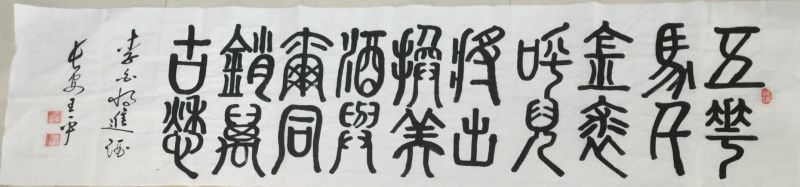 五華
馬千
金裘
呼兒
将出
換美
酒與
爾同
銷萬
古愁
李白将進酒
長安王平